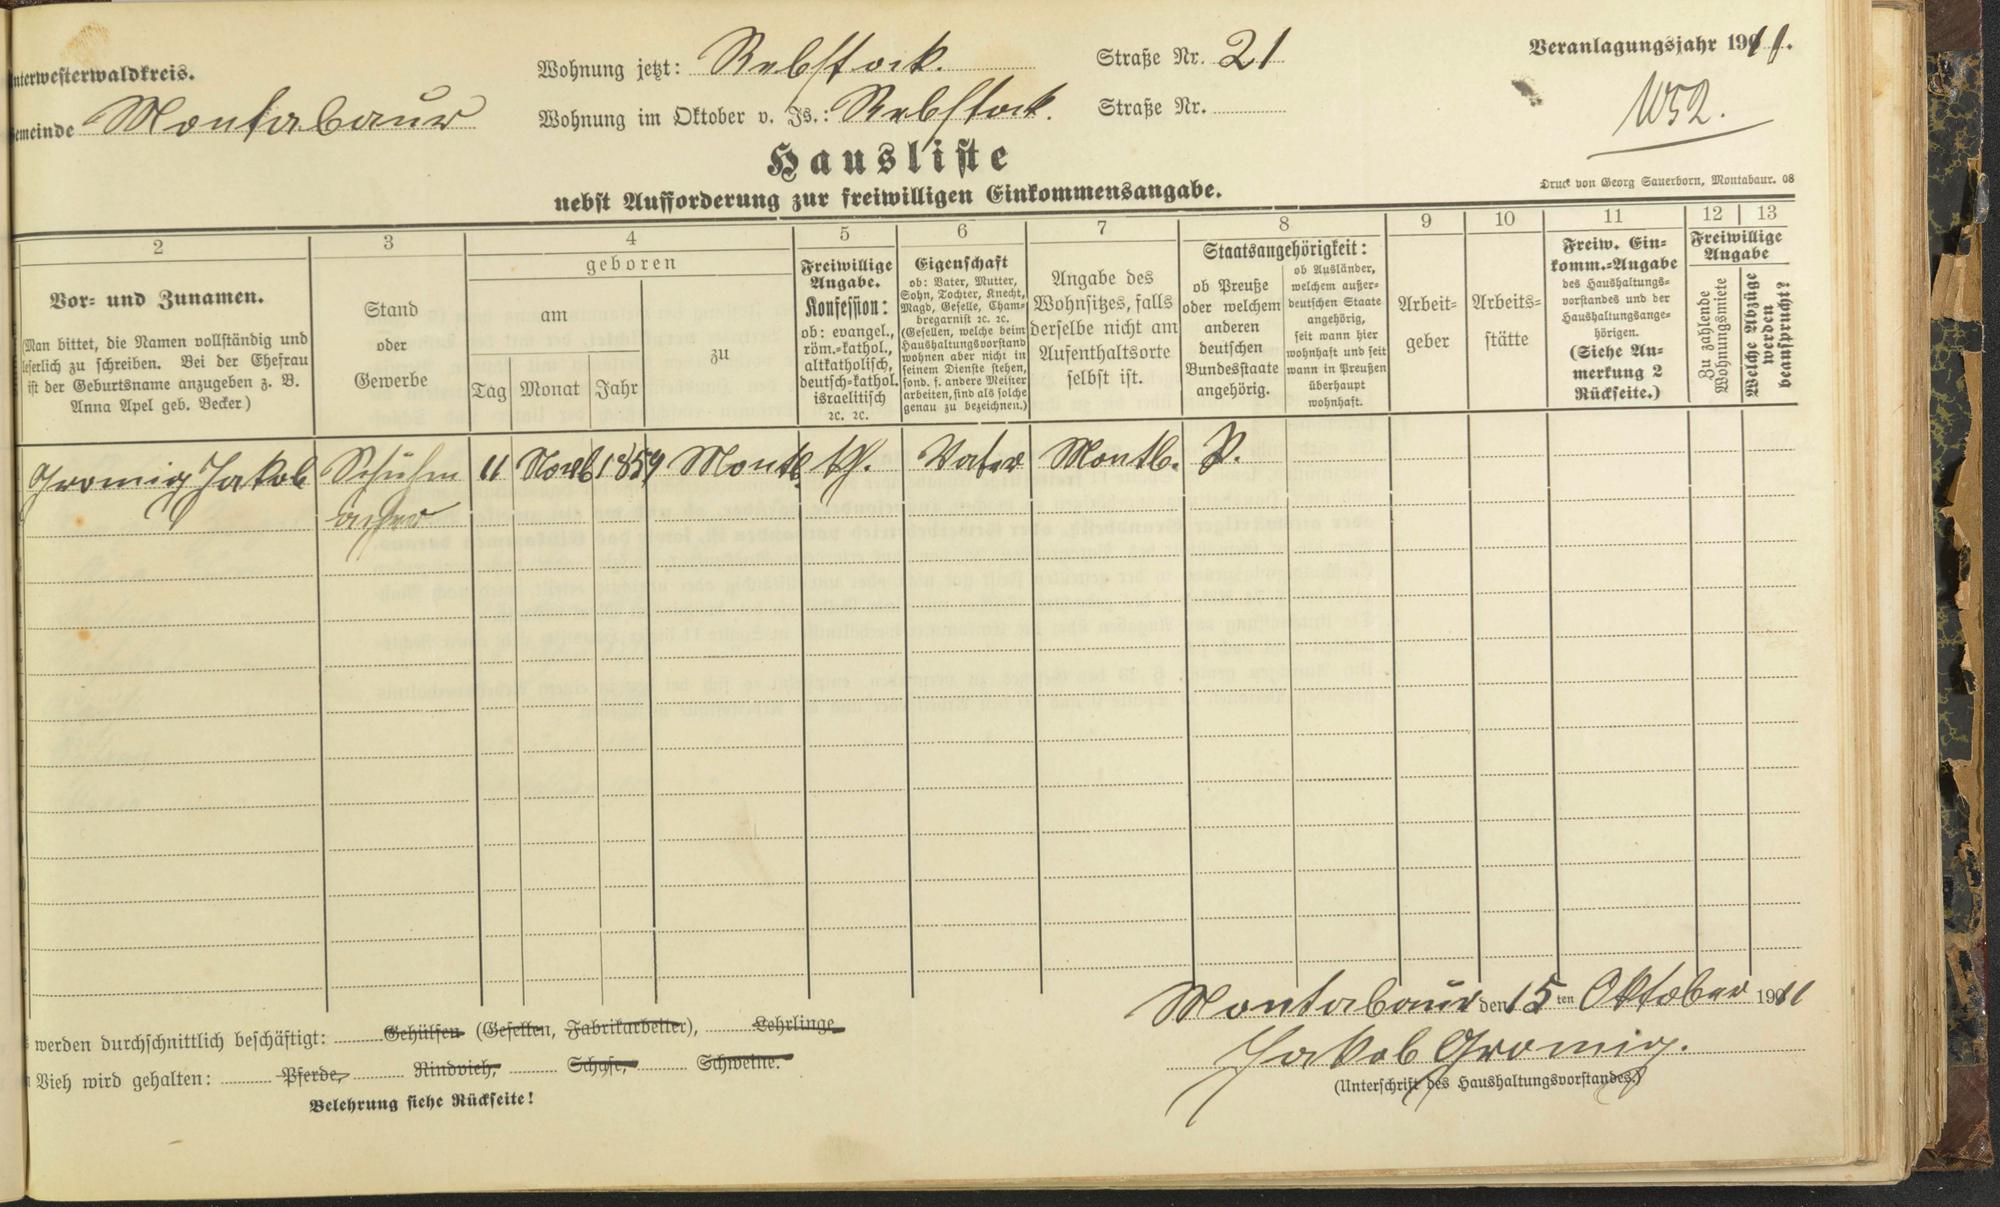 nterwesterwaldkreis.
Wohnung jetzt: Rebstock. Straße Nr. 21
Veranlagungsjahr 1911.
emeinde Montabaur
Wohnung im Oktober v. Js.: Rebstock. Straße Nr.
1052.
Hausliste
nebst Aufforderung zur freiwilligen Einkommensangabe.
Druck von Georg Sauerborn, Montabaur. 08
2
3
4
5
6
7
8
9
10
11
12
13
Vor- und Zunamen.
(Man bittet, die Namen vollständig und
leserlich zu schreiben. Bei der Ehefrau
ist der Geburtsname anzugeben z. B.
Anna Apel geb. Becker)
Stand
oder
Gewerbe
geboren
am
Tag
Monat
Jahr
zu
Freiwillige
Angabe.
Konfession:
ob: evangel.,
röm.-kathol.,
altkatholisch,
deutsch-kathol.
israelitisch
ꝛc. ꝛc.
Eigenschaft
ob: Vater, Mutter,
Sohn, Tochter, Knecht,
Magd, Geselle, Cham-
bregarnist ꝛc. ꝛc.
(Gesellen, welche beim
Haushaltungsvorstand
wohnen aber nicht in
seinem Dienste stehen,
sond. f. andere Meister
arbeiten, sind als solche
genau zu bezeichnen.)
Angabe des
Wohnsitzes, falls
derselbe nicht am
Aufenthaltsorte
selbst ist.
Staatsangehörigkeit:
ob Preuße
oder welchem
anderen
deutschen
Bundesstaate
angehörig.
ob Ausländer,
welchem außer-
deutschen Staate
angehörig,
seit wann hier
wohnhaft und seit
wann in Preußen
überhaupt
wohnhaft.
Arbeit-
geber
Arbeits-
stätte
Freiw. Ein-
komm.-Angabe
des Haushaltungs-
vorstandes und der
Haushaltungsange-
hörigen.
(Siehe An-
merkung 2
Rückseite.)
Freiwillige
Angabe
Zu zahlende
Wohnungsmiete
Welche Abzüge
werden
beansprucht?
Gromig Jakob Schuhm 11 Novb 1859 Montb. kth. Vater Montb. P.
acher
Montabaur den 15 ten Oktober 1911
werden durchschnittlich beschäftigt: Gehülfen (Gesellen, Fabrikarbeiter), Lehrlinge
Jakob Gromig.
Vieh wird gehalten: Pferde, Rindvieh, Schafe, Schweine.
(Unterschrift des Haushaltungsvorstandes.)
Belehrung siehe Rückseite!